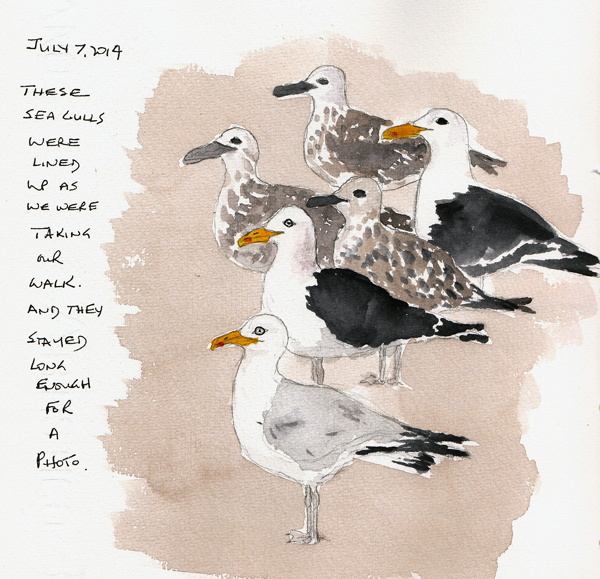 JULY 7, 2014
THESE
SEA GULLS
WERE
LINED
UP AS
WE WERE
TAKING
OUR
WALK.
AND THEY
STAYED
LONG
ENOUGH
FOR
A
PHOTO.